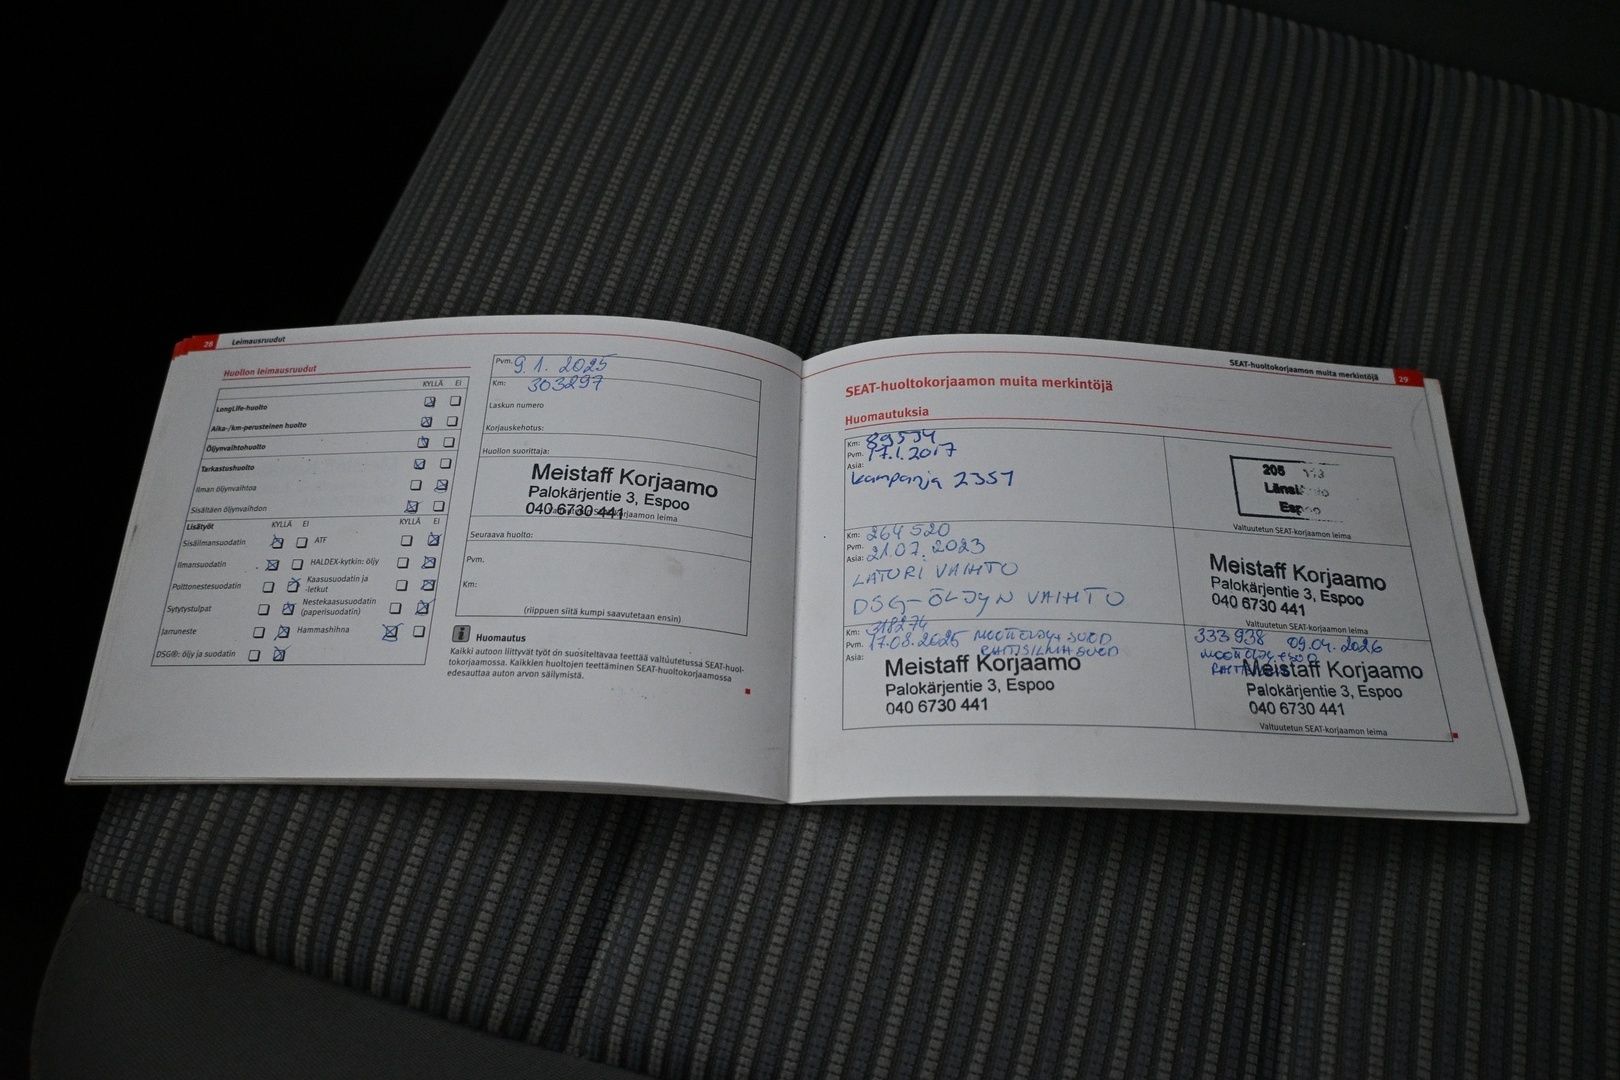 28 Leimausruudut
Huollon leimausruudut
KYLLÄ EI
LongLife-huolto
Aika-/km-perusteinen huolto
Öljynvaihtohuolto
Tarkastushuolto
Ilman öljynvaihtoa
Sisältäen öljynvaihdon
Lisätyöt KYLLÄ EI KYLLÄ EI
Sisäilmansuodatin ATF
Ilmansuodatin HALDEX-kytkin: öljy
Polttonestesuodatin Kaasusuodatin ja
-letkut
Sytytystulpat Nestekaasusuodatin
(paperisuodatin)
Jarruneste Hammashihna
DSG®: öljy ja suodatin
Pvm. 9.1.2025
Km: 303297
Laskun numero
Korjauskehotus:
Huollon suorittaja:
Meistaff Korjaamo
Palokärjentie 3, Espoo
040 6730 441
Seuraava huolto:
Pvm.
Km:
(riippuen siitä kumpi saavutetaan ensin)
i Huomautus
Kaikki autoon liittyvät työt on suositeltavaa teettää valtuutetussa SEAT-huol-
tokorjaamossa. Kaikkien huoltojen teettäminen SEAT-huoltokorjaamossa
edesauttaa auton arvon säilymistä.
SEAT-huoltokorjaamon muita merkintöjä 29
SEAT-huoltokorjaamon muita merkintöjä
Huomautuksia
Km: 89534
Pvm. 17.1.2017
Asia:
kampanja 2351
205
Espoo
Valtuutetun SEAT-korjaamon leima
Km: 264520
Pvm. 21.07.2023
Asia:
LATURI VAIHTO
DSG-ÖLJYN VAIHTO
Meistaff Korjaamo
Palokärjentie 3, Espoo
040 6730 441
Valtuutetun SEAT-korjaamon leima
Km: 318274
Pvm. 17.08.2025
Asia:
Meistaff Korjaamo
Palokärjentie 3, Espoo
040 6730 441
333938 09.04.2026
Meistaff Korjaamo
Palokärjentie 3, Espoo
040 6730 441
Valtuutetun SEAT-korjaamon leima